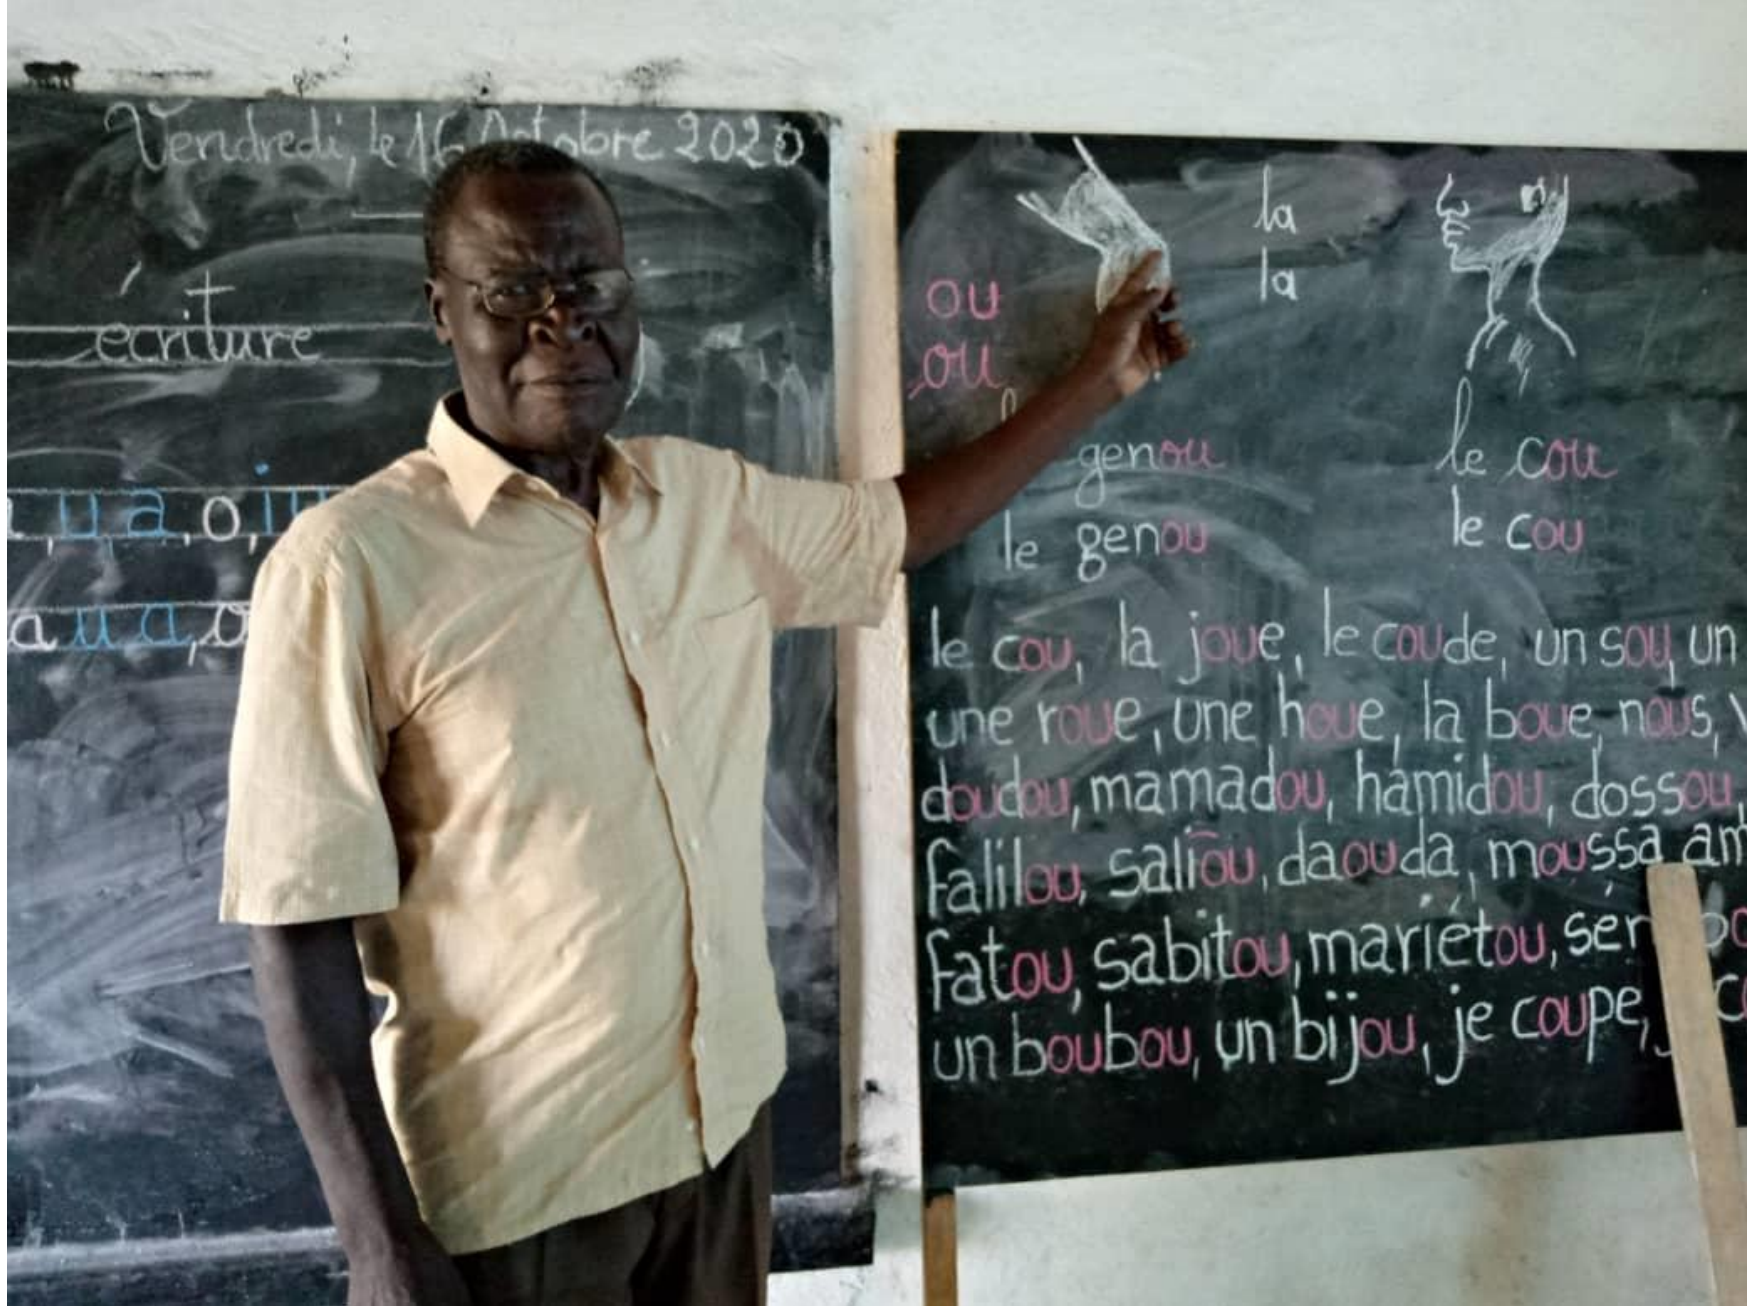 Vendredi, le 16 Octobre 2020
écriture
u a, o, i
a u a, o
ou
ou
la
la
genou
le genou
le cou
le cou
le cou, la joue, le coude, un sou, un
une roue, une houe, la boue, nous,
doudou, mamadou, hamidou, dossou,
falilou, saliou, daouda, moussa
fatou, sabitou, mariétou,
un boubou, un bijou, je coupe,